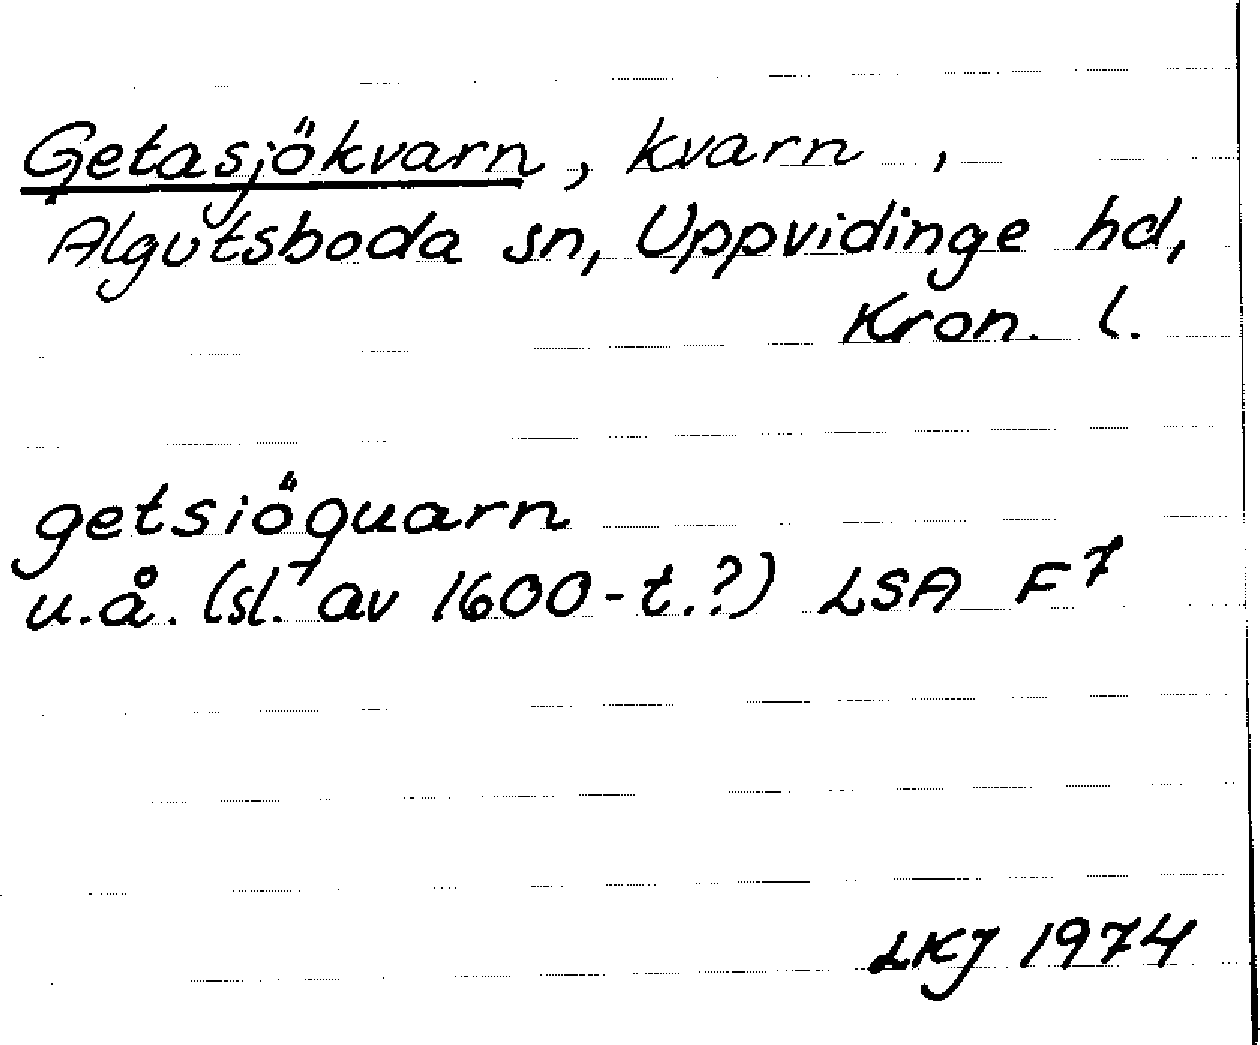 Getasjökvarn, kvarn,
Algutsboda sn, Uppvidinge hd,
Kron. l.
getsiöquarn
u.å. (sl. av 1600-t.?) LSA F7
LKJ 1974